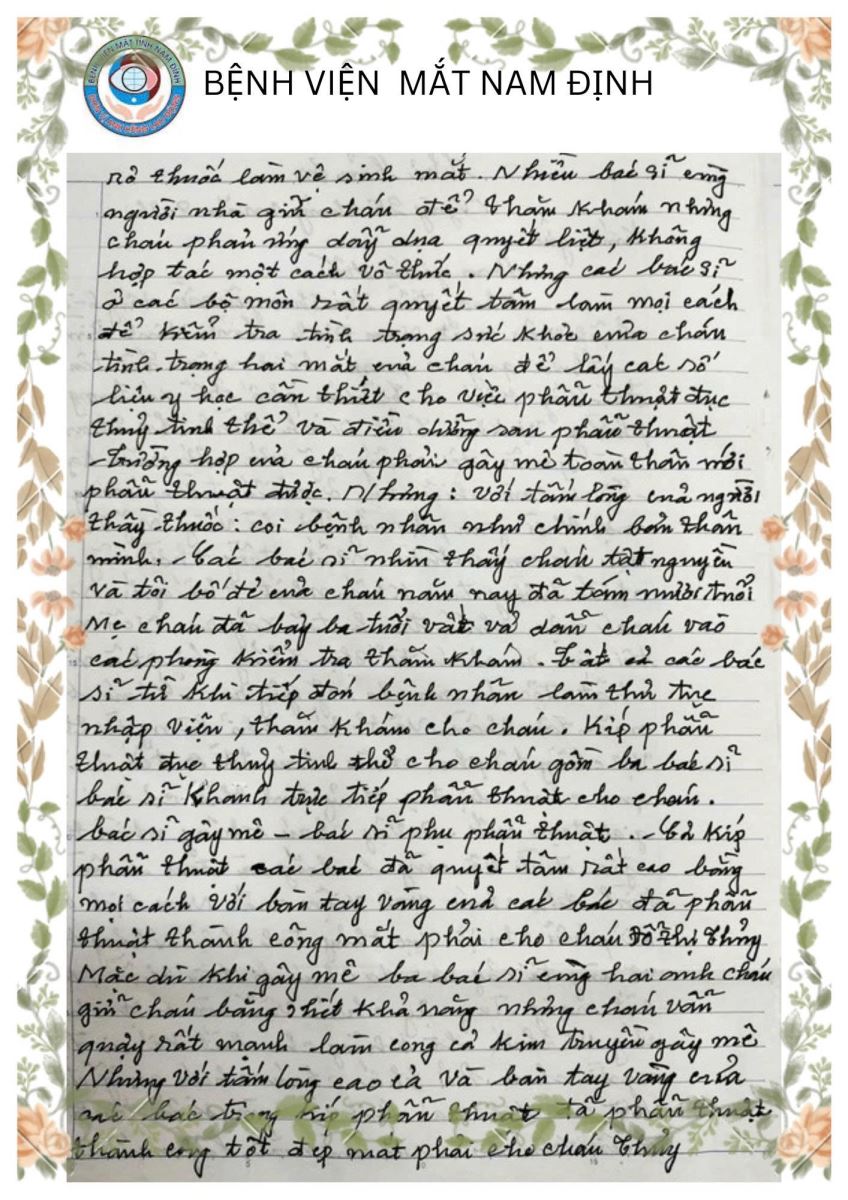 BỆNH VIỆN MẮT TỈNH NAM ĐỊNH
BỆNH VIỆN MẮT NAM ĐỊNH
rỏ thuốc làm vệ sinh mắt. Nhiều bác sĩ cùng
người nhà giữ cháu để thăm khám nhưng
cháu phản ứng dẫy dụa quyết liệt, không
hợp tác một cách vô thức. Nhưng các bác sĩ
ở các bộ môn rất quyết tâm làm mọi cách
để kiểm tra tình trạng sức khỏe của cháu
tình trạng hai mắt của cháu để lấy các số
liệu y học cần thiết cho việc phẫu thuật đục
thủy tinh thể và điều dưỡng sau phẫu thuật
Trường hợp của cháu phải gây mê toàn thân mới
phẫu thuật được. Nhưng: với tấm lòng của người
thầy thuốc: coi bệnh nhân như chính bản thân
mình. Các bác sĩ nhìn thấy cháu tật nguyền
và tôi bố đẻ của cháu năm nay đã tám mươi tuổi
Mẹ cháu đã bảy ba tuổi vất vả dẫn cháu vào
các phòng kiểm tra thăm khám. Tất cả các bác
sĩ từ khi tiếp đón bệnh nhân làm thủ tục
nhập viện, thăm khám cho cháu. Kíp phẫu
thuật đục thủy tinh thể cho cháu gồm ba bác sĩ
bác sĩ Khanh trực tiếp phẫu thuật cho cháu.
bác sĩ gây mê – bác sĩ phụ phẫu thuật. Cả kíp
phẫu thuật các bác đã quyết tâm rất cao bằng
mọi cách với bàn tay vàng của các bác đã phẫu
thuật thành công mắt phải cho cháu Đỗ Thị Thủy
Mặc dù khi gây mê ba bác sĩ cùng hai anh cháu
giữ cháu bằng hết khả năng nhưng cháu vẫn
quậy rất mạnh làm cong cả kim truyền gây mê
Nhưng với tấm lòng cao cả và bàn tay vàng của
các bác trong kíp phẫu thuật đã phẫu thuật
thành công tốt đẹp mắt phải cho cháu Thủy